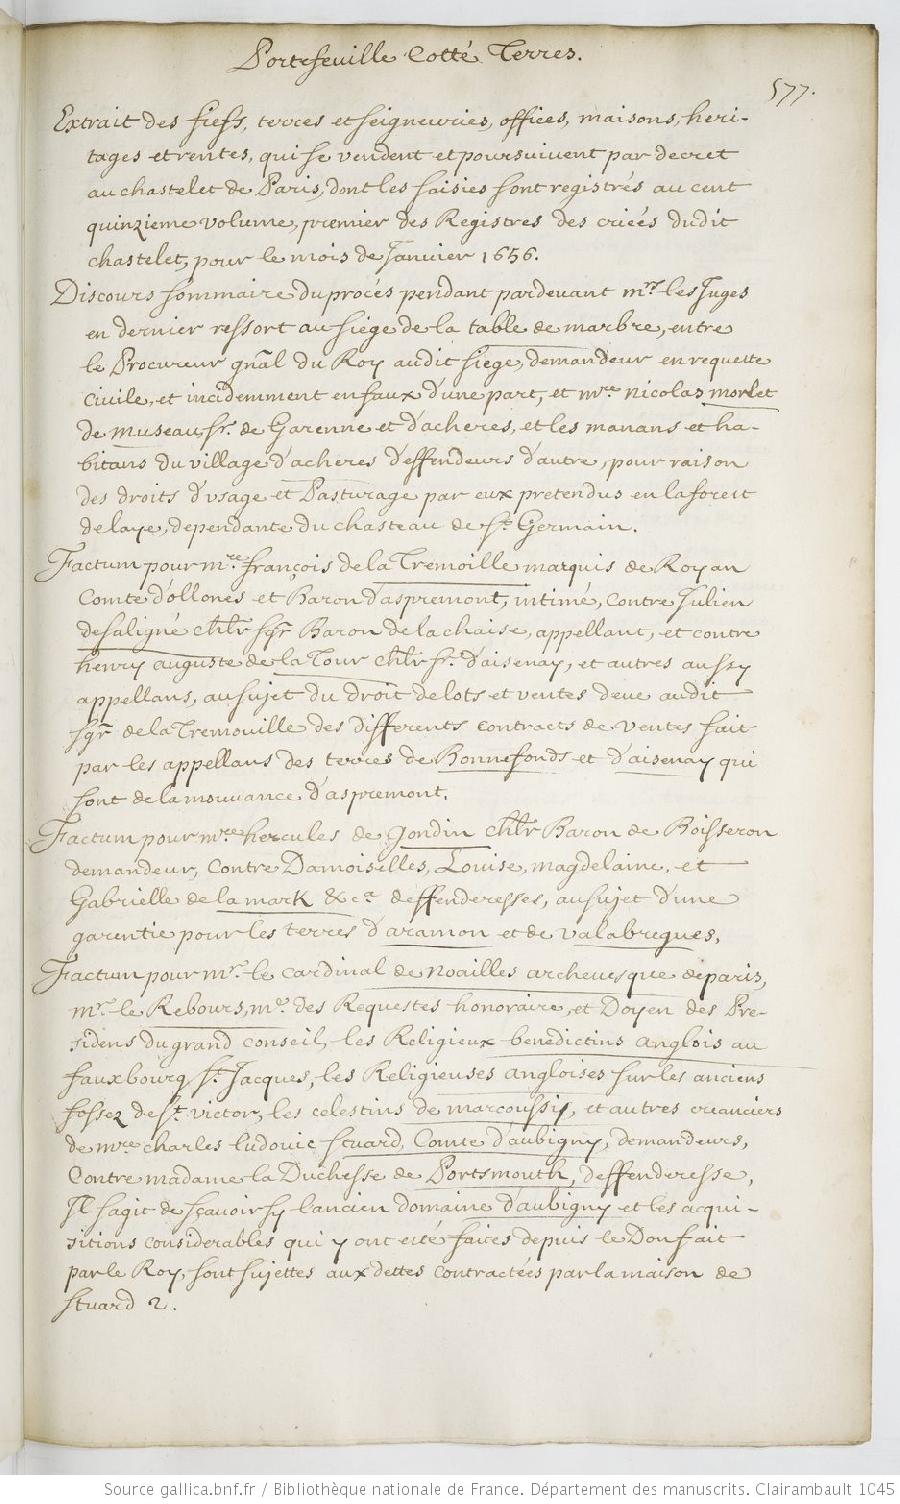 Portefeuille Cotté Terres.
577.
Extrait des fiefs, terres et seigneuries, offices, maisons, heri-
tages et rentes, qui se vendent et poursuivent par decret
au chastelet de Paris, dont les saisies sont registrés au cent
quinzieme volume, premier des Registres des criées dudit
chastelet, pour le mois de Janvier 1656.
Discours sommaire du procés pendant pardevant mrs. les Juges
en dernier ressort au siege de la table de marbre, entre
le Procureur gnãl du Roy audit siege, demandeur en requette
civile, et incidemment en faux d'une part, et mre. nicolas morlet
de museau, sr. de Garenne et d'acheres, et les manans et ha-
bitans du village d'acheres deffendeurs d'autre, pour raison
des droits d'usage et Pasturage par eux pretendus en la forest
de laye, dependante du chasteau de St. Germain.
Factum pour mre. françois de la Tremoille marquis de Royan
Comte d'ollones et Baron d'aspremont, intimé, contre Julien
de saligné chlr sgr Baron de la chaise, appellant, et contre
henry auguste de la Tour chlr sr. d'aisenay, et autres aussy
appellans, au sujet du droit de lots et ventes deue audit
sgr de la Tremouille des differents contracts de ventes fait
par les appellans des terres de Bonnefonds et d'aisenay qui
sont de la mouvance d'aspremont.
Factum pour mre hercules de Gondin chlr Baron de Boisseron
demandeur, contre Damoiselles, Louise, magdelaine, et
Gabrielle de la mark &ca. deffenderesses, au sujet d'une
garentie pour les terres d'aramon et de valabregues.
Factum pour mr. le cardinal de noailles archevesque de paris,
mr. le Rebours, me. des Requestes honoraire, et Doyen des Pre-
sidens du grand conseil, les Religieux benedictins anglois au
fauxbourg St. Jacques, les Religieuses angloises sur les anciens
fossez de St. victor, les celestins de marcoussis, et autres creanciers
de mre charles Ludovic stuard, Comte d'aubigny, demandeurs,
Contre madame la Duchesse de Portsmouth, deffenderesse,
Il s'agit de sçavoir sy l'ancien domaine d'aubigny et les acqui-
sitions considerables qui y ont esté faites depuis le Don fait
par le Roy, sont sujettes aux dettes contractées par la maison de
stuard 2.
Source gallica.bnf.fr / Bibliothèque nationale de France. Département des manuscrits. Clairambault 1045